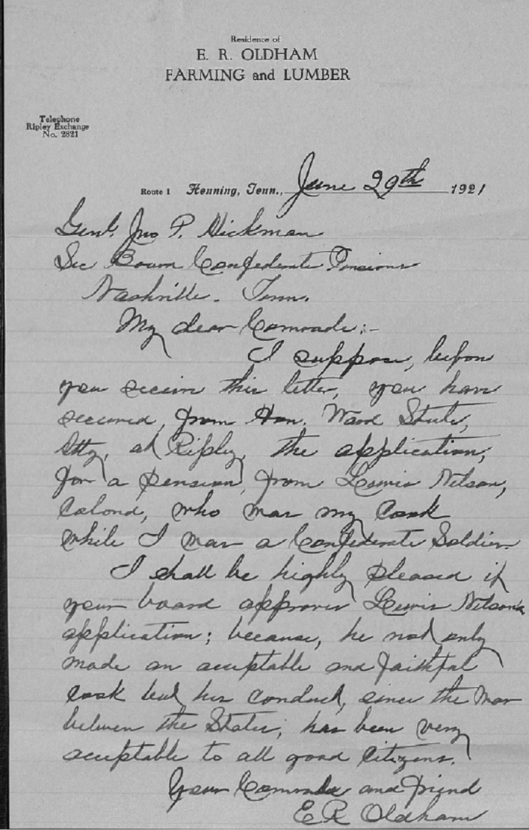 Residence of
E. R. OLDHAM
FARMING and LUMBER
Telephone
Ripley Exchange
No. 2821
Route 1 Henning, Tenn., June 29th 1921
Genl. Jno P. Hickman
Sec Board Confederate Pensions
Nashville. Tenn.
My dear Comrade:-
I suppose, before
you receive this letter, you have
received, from Hon. Ward
Atty, at Ripley, the application,
for a pension, from Lewis Nelson,
Colond, who was my Cook
while I was a Confederate Soldier.
I shall be highly pleased if
your board approves Lewis Nelson's
application; because, he not only
made an acceptable and faithful
cook but his conduct, since the War
between the States, has been very
acceptable to all good Citizens.
Your Comrade and friend
E R Oldham